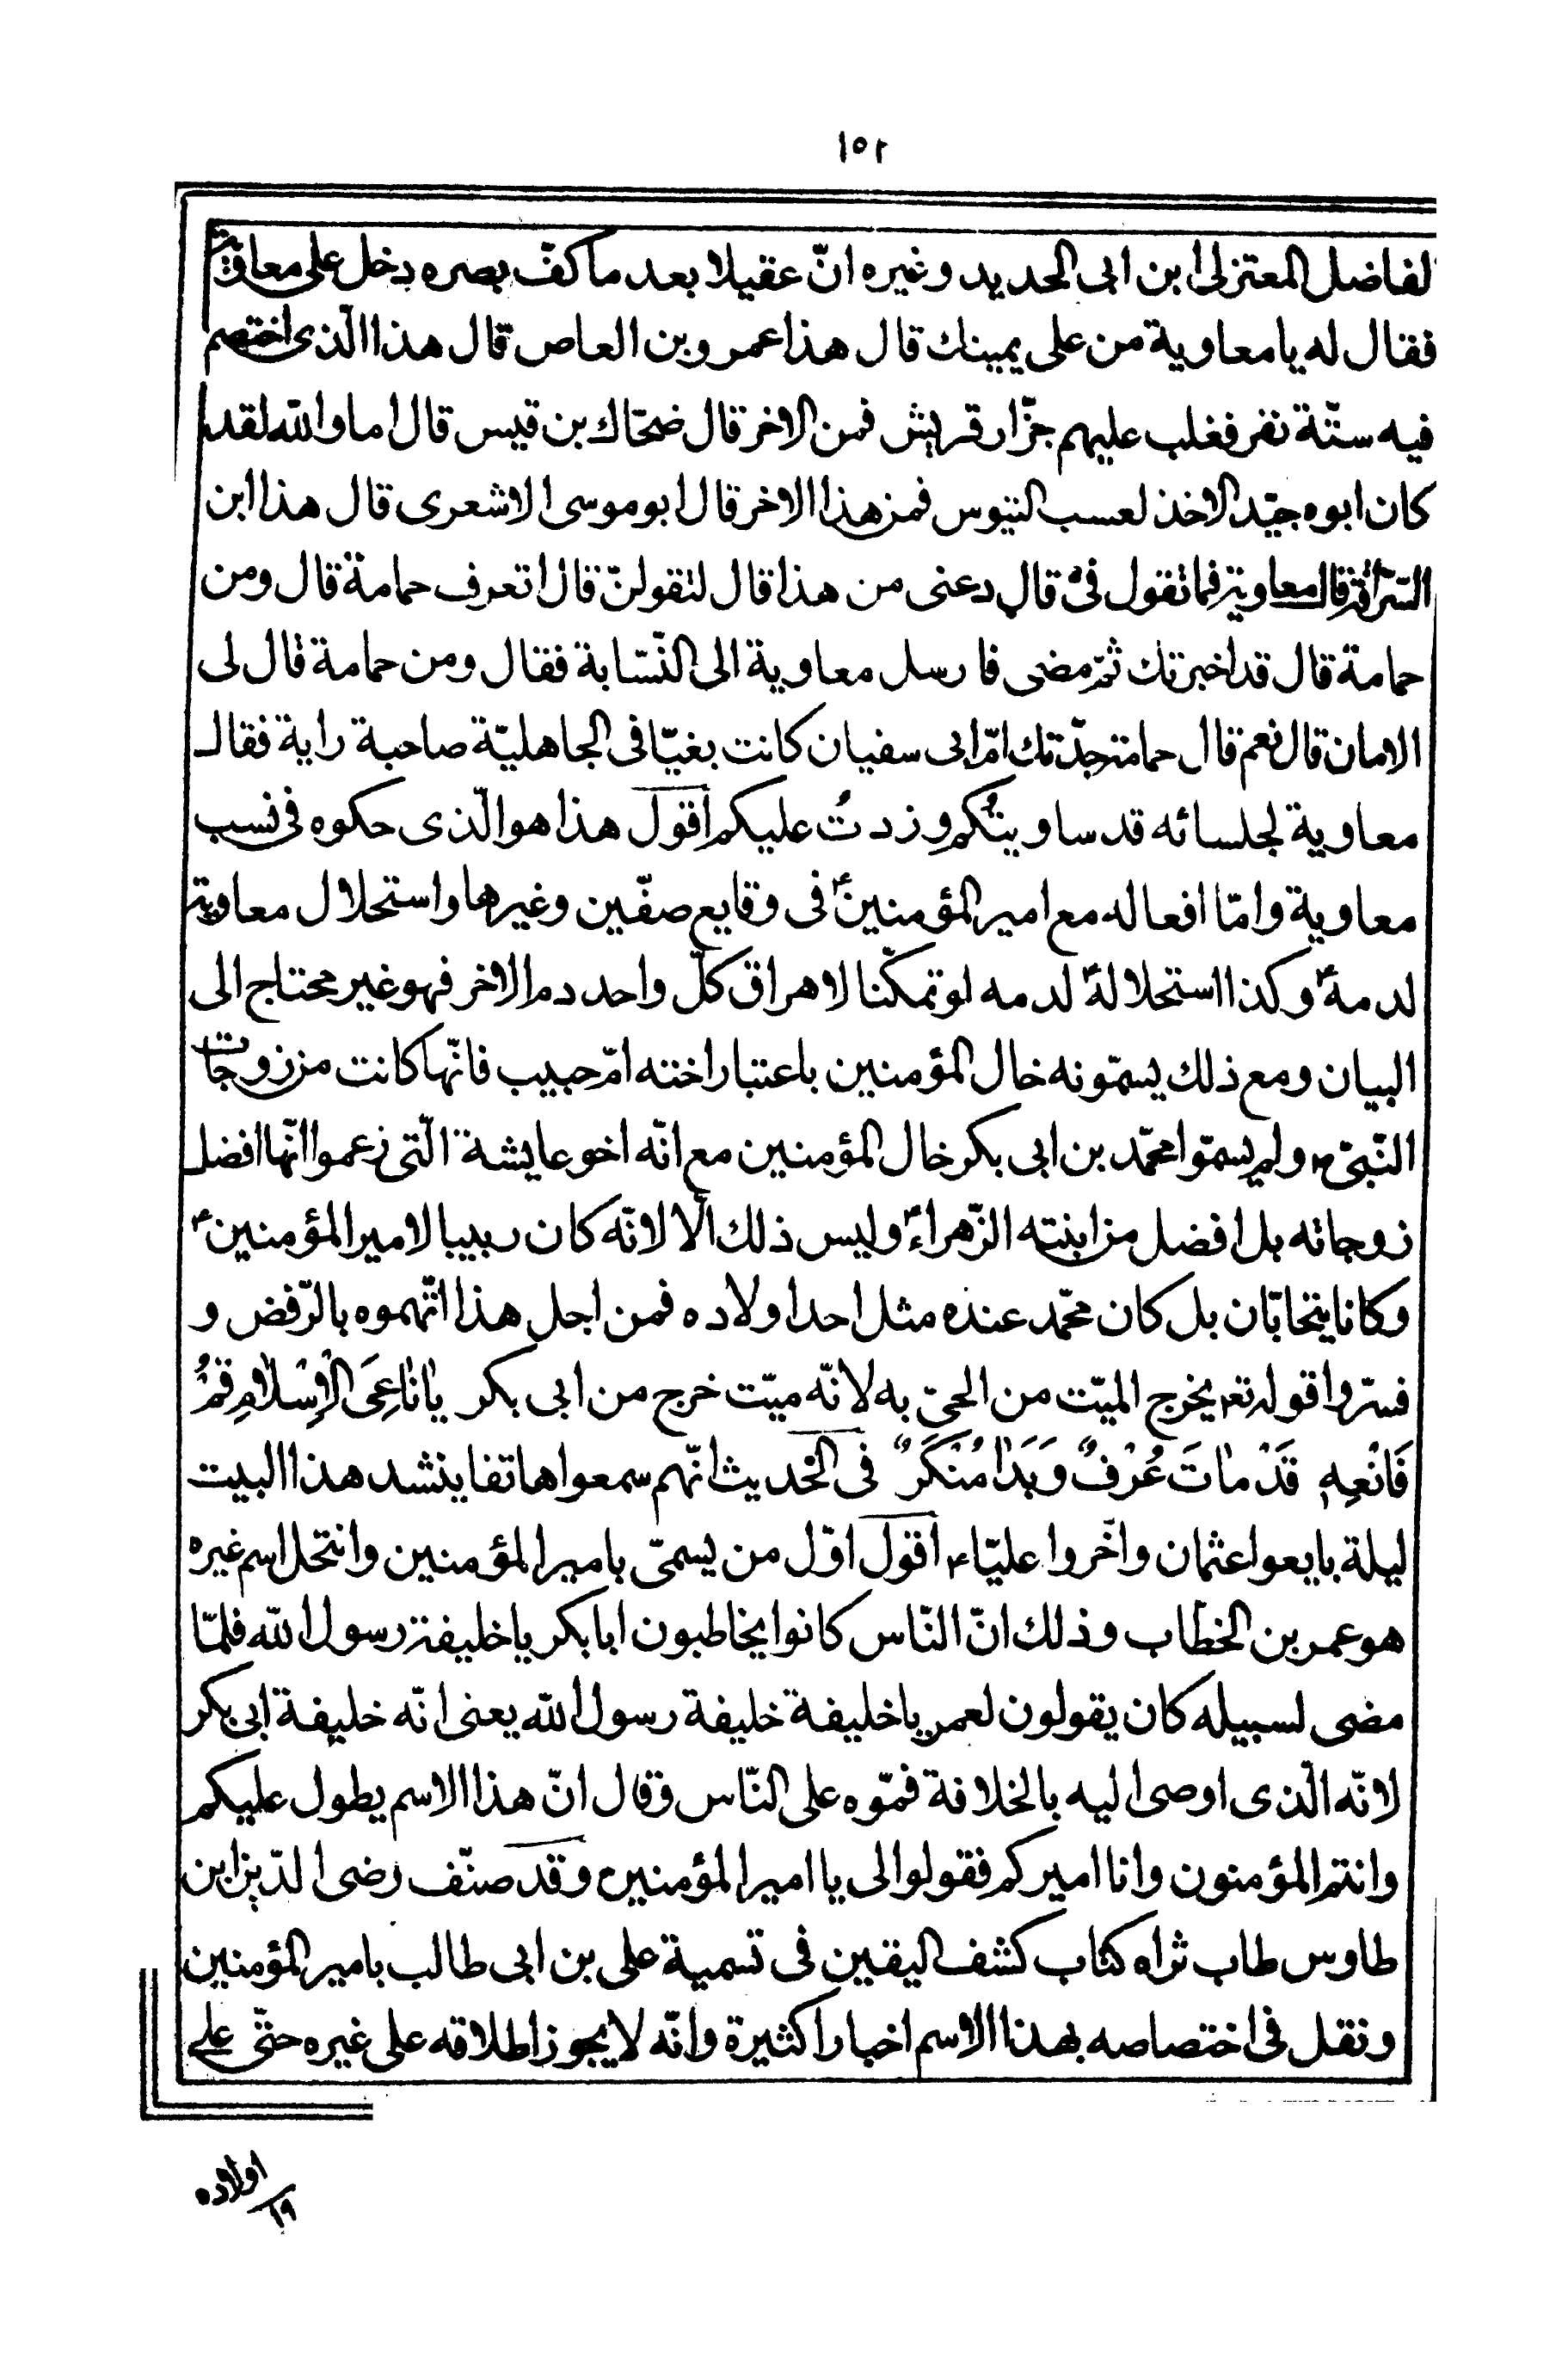 ١٥٢
لفاضل المعتزلى ابن ابى الحديد وغيره انّ عقيلا بعد ما كفّ بصره دخل على معاوية
فقال له يا معاوية من على يمينك قال هذا عمرو بن العاص قال هذا الّذى اختصم
فيه ستّة نفر فغلب عليهم جزّار قريش فمن الاخر قال ضحّاك بن قيس قال اما والله لقد
كان ابوه جيّد الاخذ لعسب التيوس فمن هذا الاخر قال ابو موسى الاشعرى قال هذا ابن
السّراقة قال معاوية فما تقول فىّ قال دعنى من هذا قال لتقولنّ قال اتعرف حمامة قال ومن
حمامة قال قد اخبرتك ثمّ مضى فارسل معاوية الى النسّابة فقال ومن حمامة قال لى
الامان قال نعم قال حمامة جدّتك امّ ابى سفيان كانت بغيّا فى الجاهليّة صاحبة راية فقال
معاوية لجلسائه قد ساويتُكم وزدتُ عليكم اقول هذا هو الّذى حكوه فى نسب
معاوية وامّا افعاله مع امير المؤمنينؑ فى وقايع صفّين وغيرها واستحلال معاوية
لدمهؑ وكذا استحلالهؑ لدمه لو تمكّنا لاهراق كلّ واحد دم الاخر فهو غير محتاج الى
البيان ومع ذلك يسمّونه خال المؤمنين باعتبار اخته امّ حبيب فانّها كانت من زوجات
النّبىّ ص ولم يسمّوا محمّد بن ابى بكر خال المؤمنين مع انّه اخو عايشة الّتى زعموا انّها افضل
زوجاته بل افضل من ابنته الزّهراءؑ وليس ذلك الّا لانّه كان ربيبا لامير المؤمنينؑ
وكانا يتحابّان بل كان محمّد عنده مثل احد اولاده فمن اجل هذا اتّهموه بالرّفض و
فسّروا قوله تعم يخرج الميّت من الحىّ به لانّه ميّت خرج من ابى بكر يَا نَاعِىَ الْإِسْلَامِ قُمْ
فَانْعِهِ قَدْ مَاتَ عُرْفٌ وَبَدَا مُنْكَرٌ فى الحديث انّهم سمعوا هاتفا ينشد هذا البيت
ليلة بايعوا عثمان واخّروا عليّاء اقول اوّل من يسمّى بامير المؤمنين وانتحل اسم غيره
هو عمر بن الخطاب وذلك انّ النّاس كانوا يخاطبون ابا بكر يا خليفة رسول الله فلمّا
مضى لسبيله كان يقولون لعمر يا خليفة خليفة رسول الله يعنى انّه خليفة ابى بكر
لانّه الّذى اوصى اليه بالخلافة فمّوه على النّاس وقال انّ هذا الاسم يطول عليكم
وانتم المؤمنون وانا اميركم فقولوا لى يا امير المؤمنين وقد صنّف رضى الدّين ابن
طاوس طاب ثراه كتاب كشف اليقين فى تسمية على بن ابى طالب بامير المؤمنين
ونقل فى اختصاصه بهذا الاسم اخبارا كثيرة وانّه لا يجوز اطلاقه على غيره حتّى على
اولاده
١٩